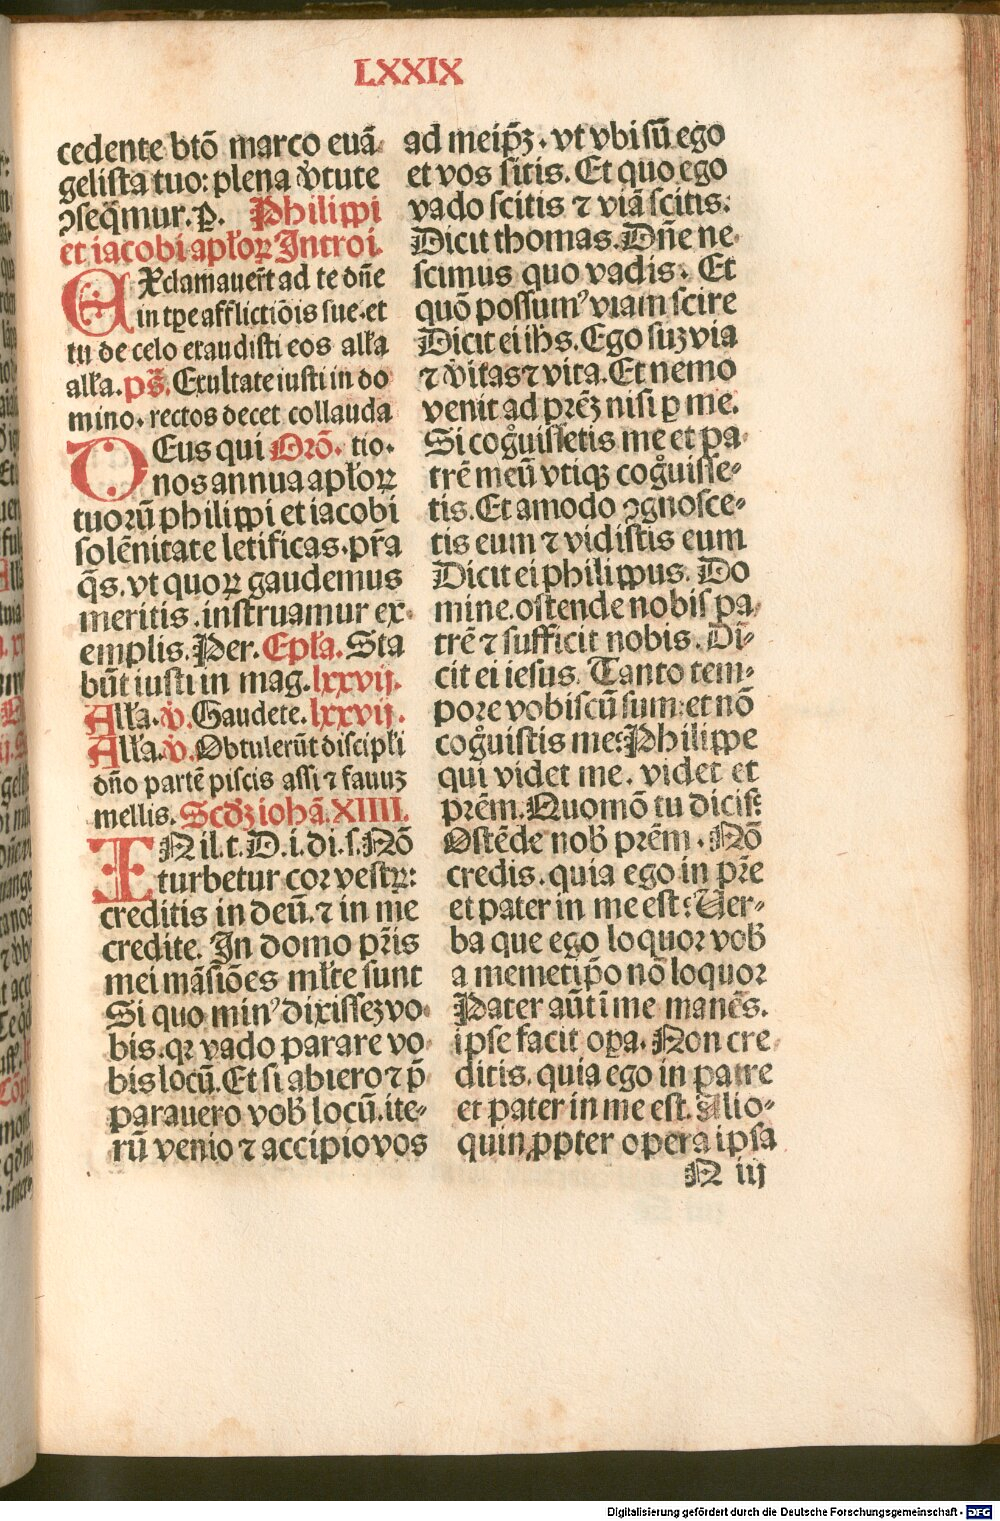 LXXIX
cedente btõ marco euã
gelista tuo: plena v̾tute
ꝯseq̃mur. P. Philippi
et iacobi apłoꝝ Introi.
EXclamauer̃t ad te dñe
in tpe afflictiõis sue. et
tu de celo exaudisti eos alła
alła. ps̃. Exultate iusti in do
mino. rectos decet collauda
DEus qui Orõ. tio.
nos annua apłoꝝ
tuorũ philippi et iacobi
solẽnitate letificas. pr̃a
q̃s. vt quoꝝ gaudemus
meritis. instruamur ex
emplis. Per. Epła. Sta
bũt iusti in mag. lxxvij.
Alła. v̾. Gaudete. lxxvij.
Alła. v̾. Obtulerũt discipłi
dño partẽ piscis assi ⁊ fauuȝ
mellis. Scd̾ȝ iohã. XIIII.
IN il. t. D. i. di. s. Nõ
turbetur cor vestꝝ:
creditis in deũ. ⁊ in me
credite. In domo pr̃is
mei mãsiões młte sunt
Si quo minꝰ dixisseȝ vo
bis. qꝛ vado parare vo
bis locũ. Et si abiero ⁊ p̃
parauero vob̾ locũ. ite-
rũ venio ⁊ accipio vos
ad meip̃ȝ. vt vbi sũ ego
et vos sitis. Et quo ego
vado scitis ⁊ viã scitis:
Dicit thomas. Dñe ne
scimus quo vadis. Et
quõ possumꝰ viam scire
Dicit ei ihs. Ego suȝ via
⁊ v̾itas ⁊ vita. Et nemo
venit ad pr̃eȝ nisi ꝑ me.
Si cog̊uissetis me et pa
trẽ meũ vtiqꝫ cog̊uisse-
tis. Et amodo ꝯgnosce-
tis eum ⁊ vidistis eum
Dicit ei philippus. Do
mine. ostende nobis pa
trẽ ⁊ sufficit nobis. Di-
cit ei iesus. Tanto tem-
pore vobiscũ sum: et nõ
cog̊uistis me: Philippe
qui videt me. videt et
prẽm. Quomõ tu dicis:
Ostẽde nob̾ prẽm. Nõ
credis. quia ego in pr̃e
et pater in me est: Uer-
ba que ego loquor vob̾
a memetip̃o nõ loquor
Pater aũt ĩ me manẽs.
ipse facit oꝑa. Non cre
ditis. quia ego in patre
et pater in me est. Alio-
quin ꝓpter opera ipsa
N iij
Digitalisierung gefördert durch die Deutsche Forschungsgemeinschaft - DFG